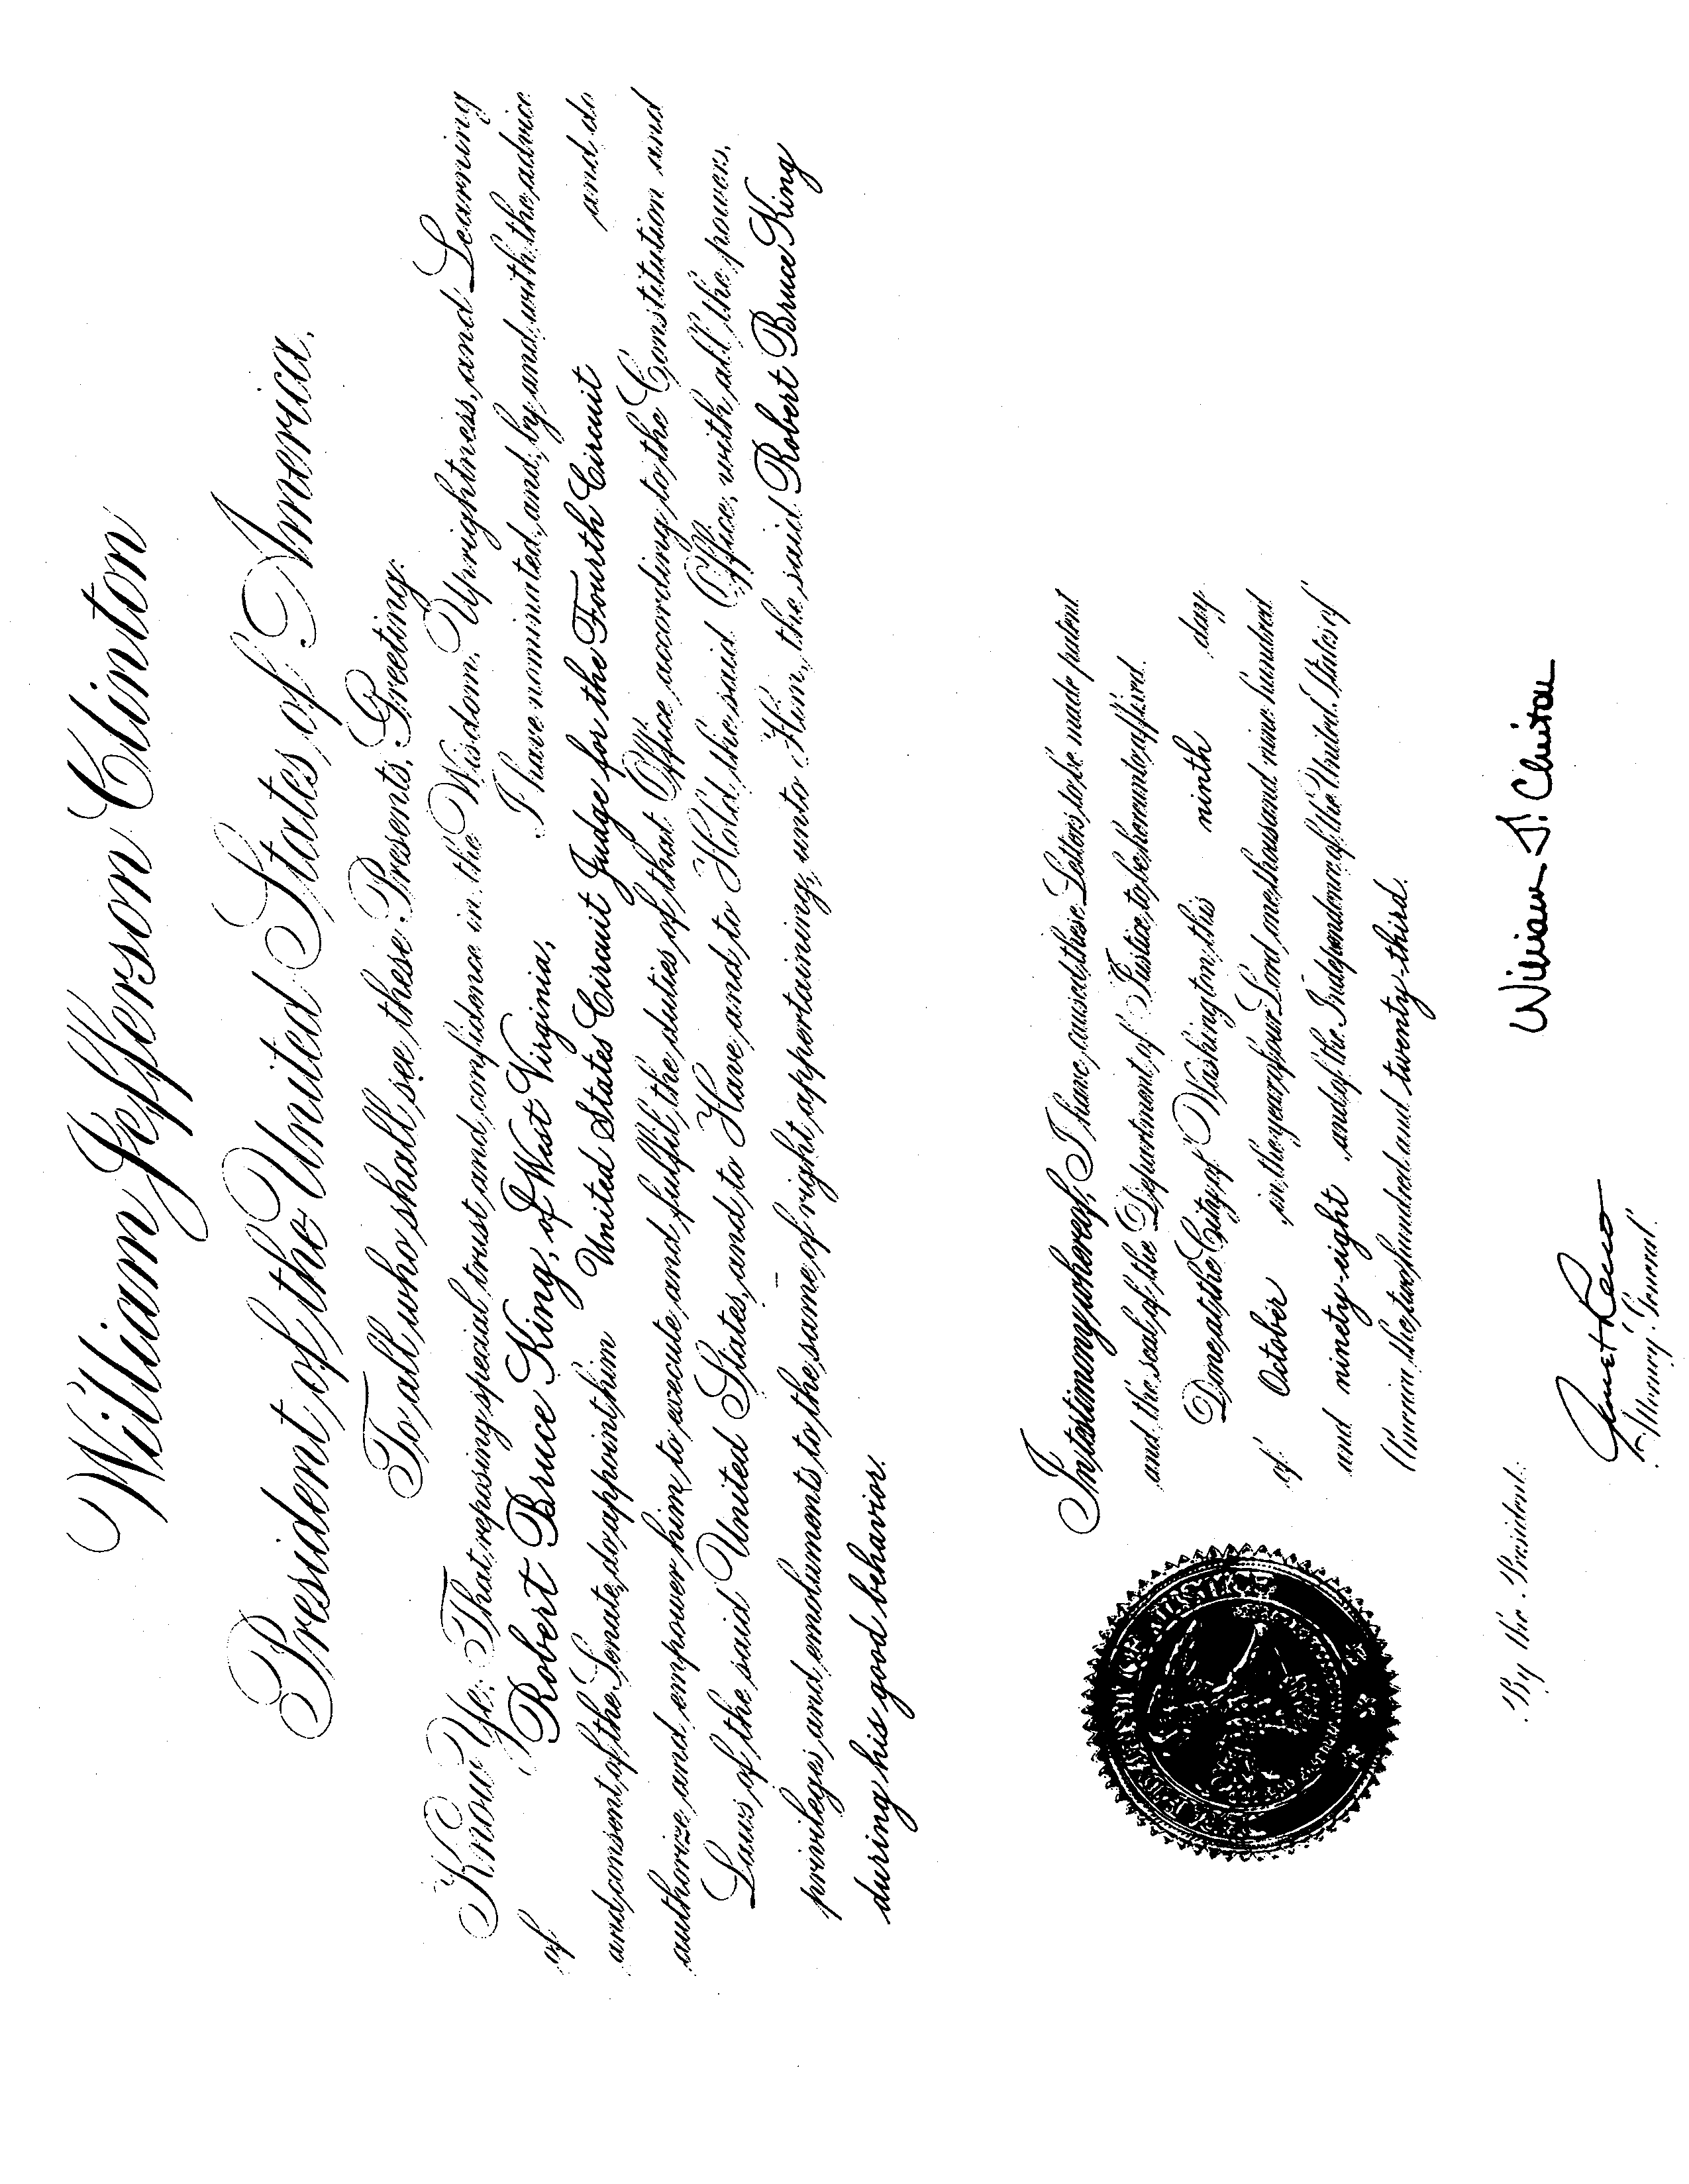 William Jefferson Clinton
President of the United States of America.
To all who shall see these Presents, Greeting:
Know Ye: That, reposing special trust and confidence in the Wisdom, Uprightness, and Learning
of Robert Bruce King, of West Virginia, I have nominated, and, by and with the advice
and consent of the Senate, do appoint him United States Circuit Judge for the Fourth Circuit and do
authorize and empower him to execute and fulfil the duties of that Office according to the Constitution and
Laws of the said United States, and to Have and to Hold the said Office, with all the powers,
privileges and emoluments to the same of right appertaining, unto Him, the said Robert Bruce King
during his good behavior.
In testimony whereof, I have caused these Letters to be made patent
and the seal of the Department of Justice to be hereunto affixed.
Done at the City of Washington, this ninth day
of October in the year of our Lord one thousand nine hundred
and ninety-eight, and of the Independence of the United States of
America the two hundred and twenty-third.
William J. Clinton
By the President:
Janet Reno
Attorney General.